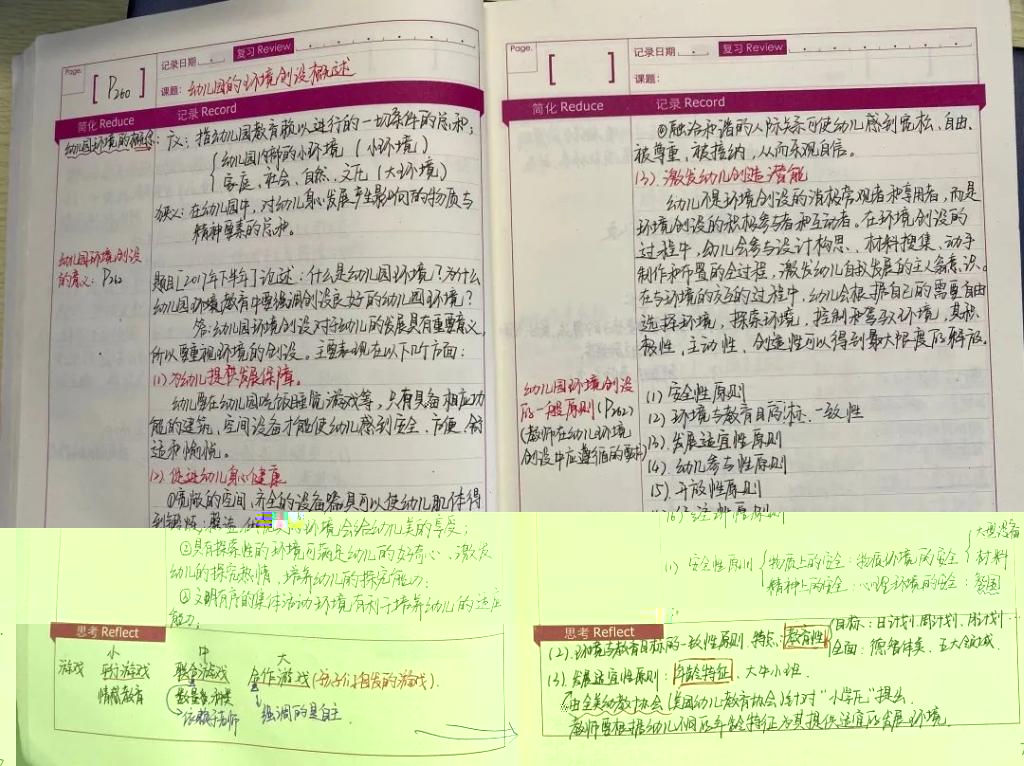 Page.
[ P260 ]
记录日期 复习 Review
课题: 幼儿园的环境创设概述
简化 Reduce 记录 Record
幼儿园环境的概念: 广义: 指幼儿园教育赖以进行的一切条件的总和;
幼儿园内部的小环境 (小环境)
家庭、社会、自然、文化 (大环境)
狭义: 在幼儿园中,对幼儿身心发展产生影响的物质与
精神要素的总和。
幼儿园环境创设
的意义: P260
题目[2017年下半年]论述: 什么是幼儿园环境?为什么
幼儿园环境教育中要强调创设良好的幼儿园环境?
答: 幼儿园环境创设对于幼儿的发展具有重要意义,
所以要重视环境的创设。主要表现在以下几个方面:
(1) 为幼儿提供发展保障。
幼儿要在幼儿园吃饭睡觉游戏等,只有具备相应功
能的建筑、空间设备才能使幼儿感到安全、方便、舒
适和愉悦。
(2) 促进幼儿身心健康
①宽敞的空间,齐全的设备器具可以使幼儿肌体得
到锻炼;
环境会给幼儿美的享受;
②具有探索性的环境可满足幼儿的好奇心、激发
幼儿的探究热情、培养幼儿的探究能力;
③文明有序的集体活动环境有利于培养幼儿的适应
能力;
思考 Reflect
小 中 大
游戏 平行游戏 联合游戏 合作游戏 (孩子们自发的游戏).
情感教育
强调的是自主.
Page.
[ ]
记录日期 复习 Review
课题:
简化 Reduce 记录 Record
④融洽和谐的人际关系可使幼儿感到宽松、自由、
被尊重、被接纳,从而乐观自信。
(3) 激发幼儿创造潜能
幼儿不是环境创设的消极旁观者和享用者,而是
环境创设的积极参与者和互动者。在环境创设的
过程中,幼儿会参与设计构思、材料搜集、动手
制作和布置的全过程,激发幼儿自我发展的主人翁意识。
在与环境的交互的过程中,幼儿会根据自己的需要自由
选择环境,探索环境,控制和驾驭环境,其积
极性、主动性、创造性可以得到最大限度的解放。
幼儿园环境创设
的一般原则(P262)
(教师在幼儿环境
创设中应遵循的要求)
(1) 安全性原则
(2) 环境与教育目标一致性
(3) 发展适宜性原则
(4) 幼儿参与性原则
(5) 开放性原则
(1) 安全性原则
物质上的安全: 物质环境的安全
大型设备
材料
精神上的安全: 心理环境的安全:
思考 Reflect
(2) 环境与教育目标的一致性原则. 特点: 教育性
目标: 日计划、周计划、月计划...
全面: 德智体美、五大领域
(3) 发展适宜性原则: 年龄特征: 大中小班.
由全美幼教协会 (美国幼儿教育协会) 针对“小学化”提出.
教师要根据幼儿不同年龄特征为其提供适宜的发展环境.